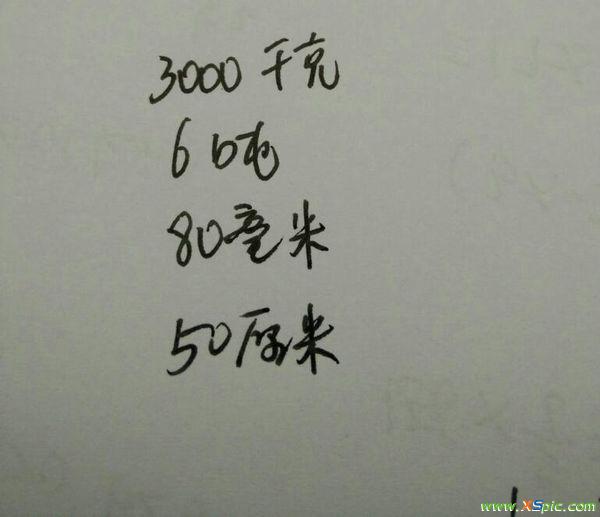 3000千克
6吨
80毫米
50厘米
www.XSpic.com